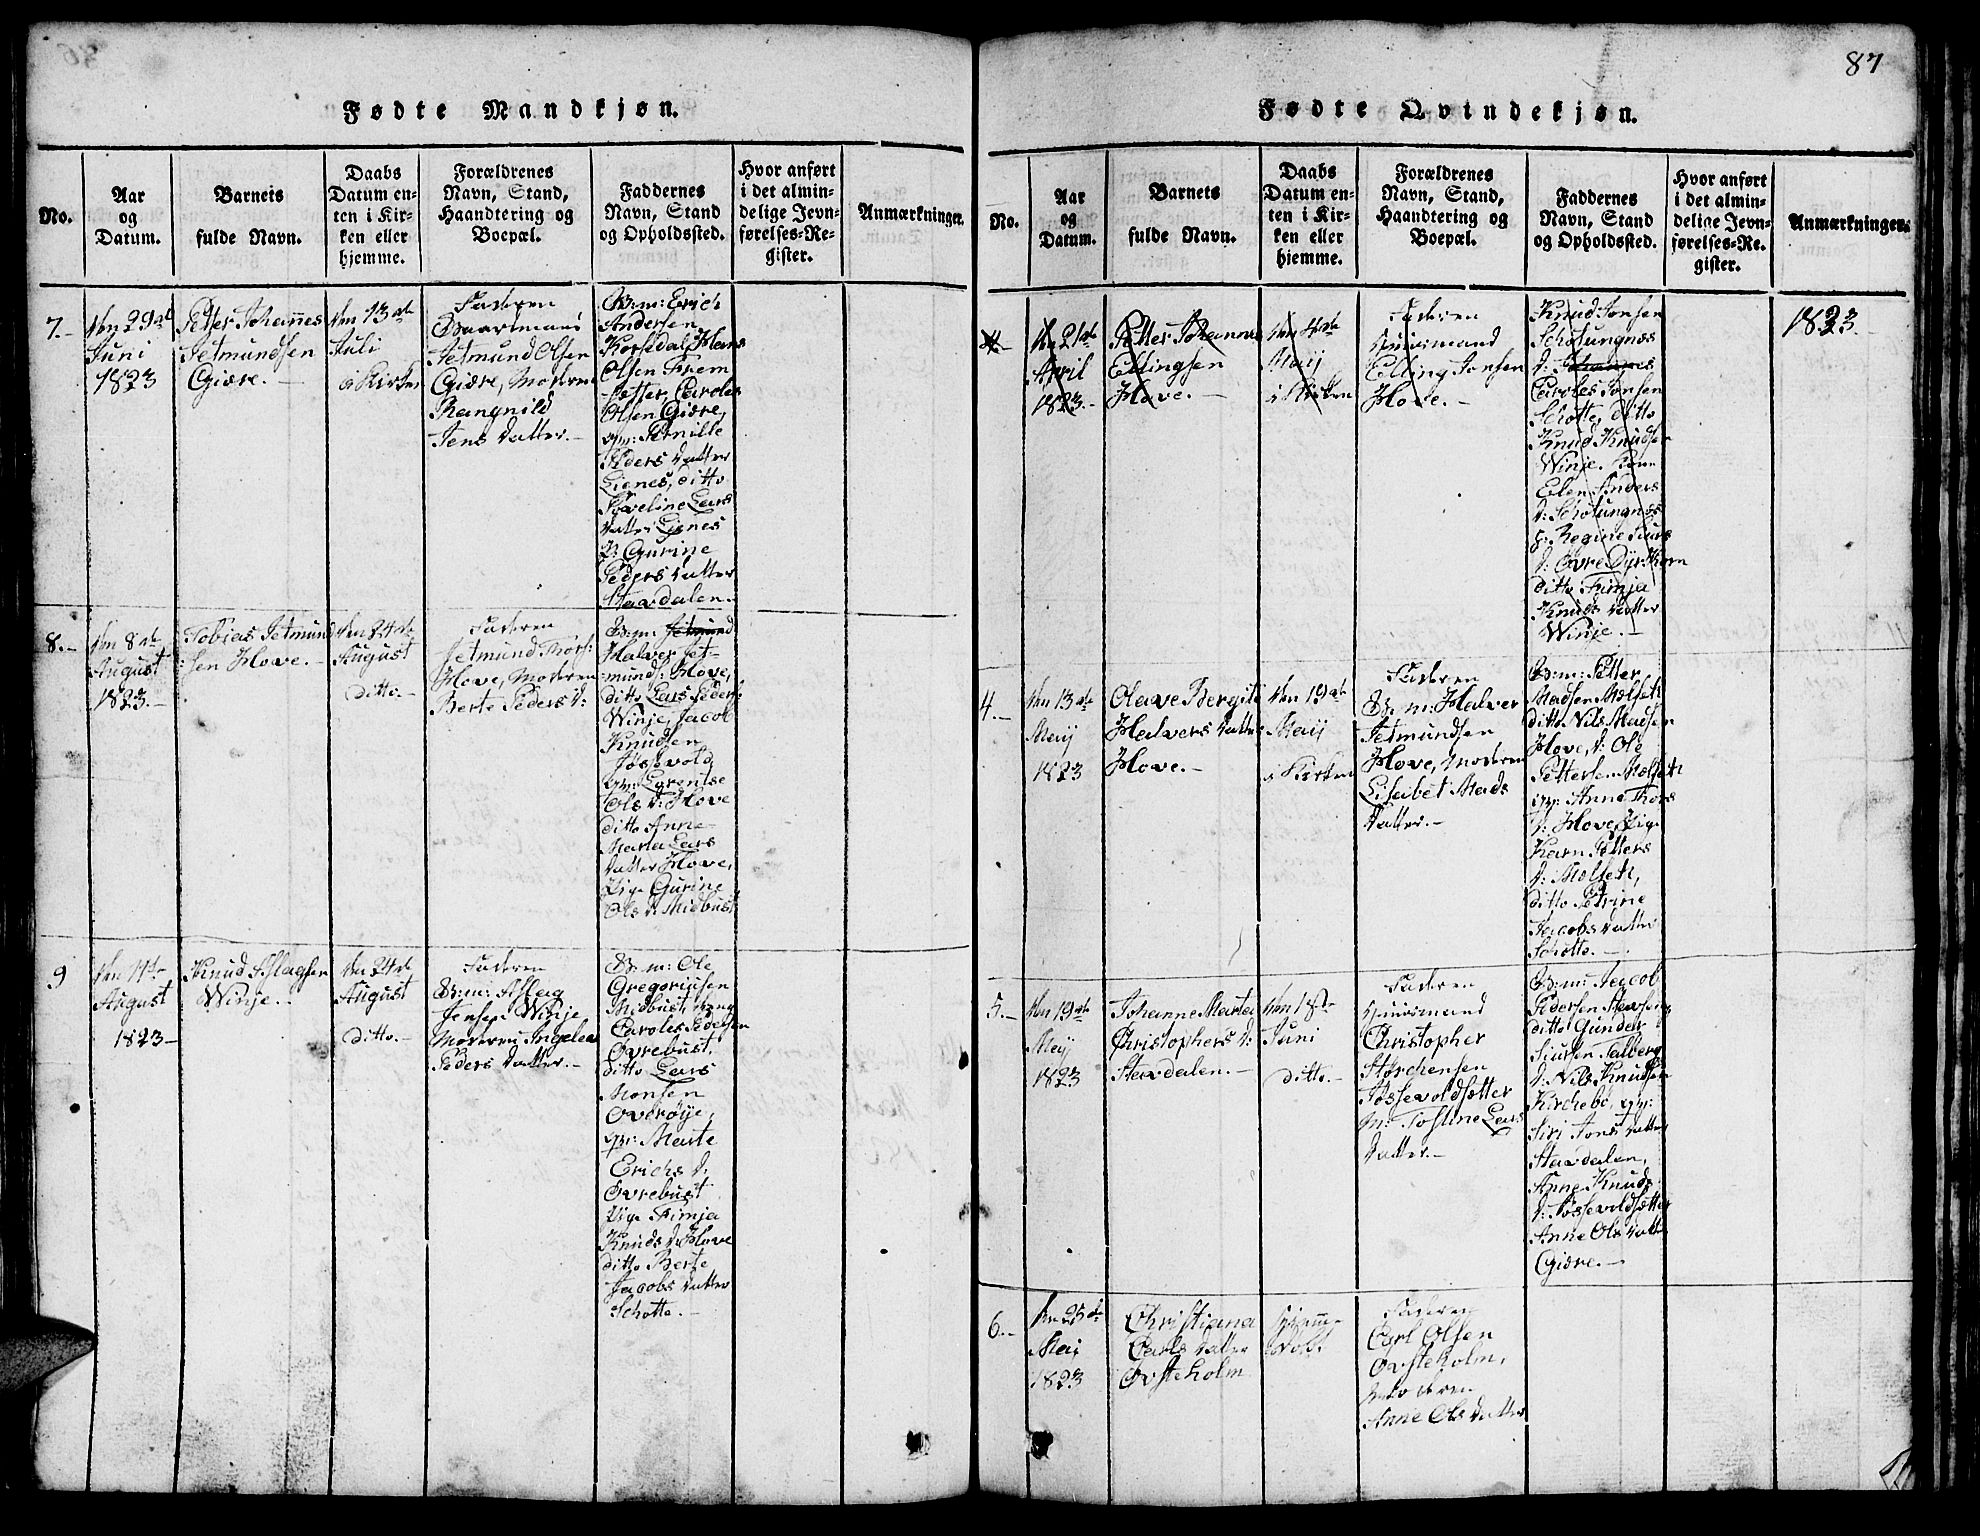 Fødte Mandkjøn.
No.
Aar
og
Datum.
Barnets
fulde Navn.
Daabs
Datum en-
ten i Kir-
ken eller
hjemme.
Forældrenes
Navn, Stand,
Haandtering og
Boepæl.
Faddernes
Navn, Stand
og Opholdssted.
Hvor anført
i det almin-
delige Jevn-
førelses-Re-
gister.
Anmærkninger.
7.-
den 29de
Juni
1823
Petter Johannes
Jetmundsen
Giære.-
den 13de
Juli
i Kirken
Faderen
Jetmund Olsen
Giære, Moderen
Rangnild
Jens datter.-
B:m: Erich
Andersen
Korsedal, Hans
Olsen Frem
Caroles
Olsen Giære,
Pernille
Peders datter
Lienes, ditto
Lars
datter Lienes
P: Gurine
Peders datter
Stavdalen.-
8.-
den 8de
August
1823.-
Tobias Jetmund
sen Hove.-
den 24de
August
ditto.-
Faderen
Jetmund Thors:
Hove, Moderen
Berte Peders d:
B:m: Jetmund
Halver Jet-
munds: Hove,
ditto Lars Peders
Winje, Jacob
Knudsen
Jøssevold,
Lorentse
Ols d: Hove
ditto Anne
Marta Lars
datter Hove,
Pige Gurine
Ols d: Midbust
9
August
1823-
Knud Aslagsen
Winje.-
den 24de
August
ditto.-
Faderen
B:m: Aslag
Jensen Winje
Moderen Ingeles
Peders datter.-
B:m: Ole
Gregoriusen
Midbust, dreng
Caroles Pedersen
Øvrebust,
ditto Lars
Monsen
Overøije,
Marte
Erichs d:
Øvrebust
Pige Fimja
Knuds d: Hove
ditto Berte
Jacobs datter
Schotte.-
87
Fødte Qvindekjøn.
No.
Aar
og
Datum.
Barnets
fulde Navn.
Daabs
Datum en-
ten i Kir-
ken eller
hjemme.
Forældrenes
Navn, Stand,
Haandtering og
Boepæl.
Faddernes
Navn, Stand
og Opholdssted.
Hvor anført
i det almin-
delige Jevn-
førelses-Re-
gister.
Anmærkninger.
4.-
den 21de
April
1823.-
Petter Johannes
Ellingsen
Hove.-
den 4de
Maij
i Kirken
Faderen
Huusmand
Elling Jonsen
Hove.-
Knud Jonsen
Schotungnos
d: Johannes
Caroles Jonsen
Schotte, ditto
Knud Knudsen
Winje. Kone
Elen Anders
d: Schotungnos
p: Regine Siurs
d: Øvre Dyrkorn
ditto Fimja
Knuds datter
Winje.-
1823.
4.-
den 13de
Maij
1823
Olave Bergite
Halvers datter
Hove.-
den 19de
Maij
i Kirken
Faderen
B:m: Halver
Jetmundsen
Hove, Moderen
Lisabet Mads
datter.-
B:m: Petter
Madsen Molseth
ditto Nils Madsen
Hove, d: Ole
Pettersen Molseth
Anne Thors
d: Hove, Pige
Karn Petters
d: Molseth,
ditto Petrine
Jacobs datter
Schotte.-
5.-
den 19de
Maij
1823
Johanne Marta
Christophers d:
Stavdalen.-
den 1ste
Juni
ditto.-
Faderen
Huusmand
Christopher
Størchersen
Jøssevoldsætter
M: Jostine Lars
datter.-
B:m: Jacob
Pedersen
ditto Gunder
Siursen Talberg
d: Nils Knudsen
Kirchebø,
Siri Jons datter
Stavdalen,
Anne Knuds
d: Jøssevoldsætter
Anne Ols datter
Giære.-
6.-
den 25de
Maj
1823
Christiana
Carls datter
Ovsteholm
Hjemme
døbt.
Faderen
Carl Olsen
Ovsteholm,
Moderen
Anne Ols datter